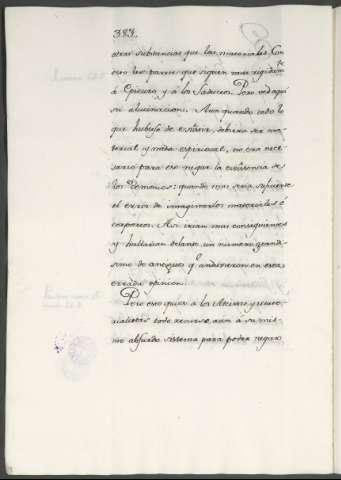 383.
otras substancias que las materiales. Con
esto les parece que siguen mas rigidam.te
á Epicuro y á los Saduceos. Pero ved aqui
su alucinacion. Aun quando todo lo
que hubiese de existir, debiera ser ma-
terial, y nada espiritual, no era nece-
sario para eso negar la existencia de
los Demonios: quando mas seria suficiente
el error de imaginarlos materiales ó
corporeos. Asi irian mas consiguientes
y hallarian delante un numero grandi-
simo de antiguos q.e anduvieron en esta
errada opinion.
Pero esto quita á los Ateistas y mate-
rialistas todo recurso, aun á su mis-
mo absurdo sistema para poder negar